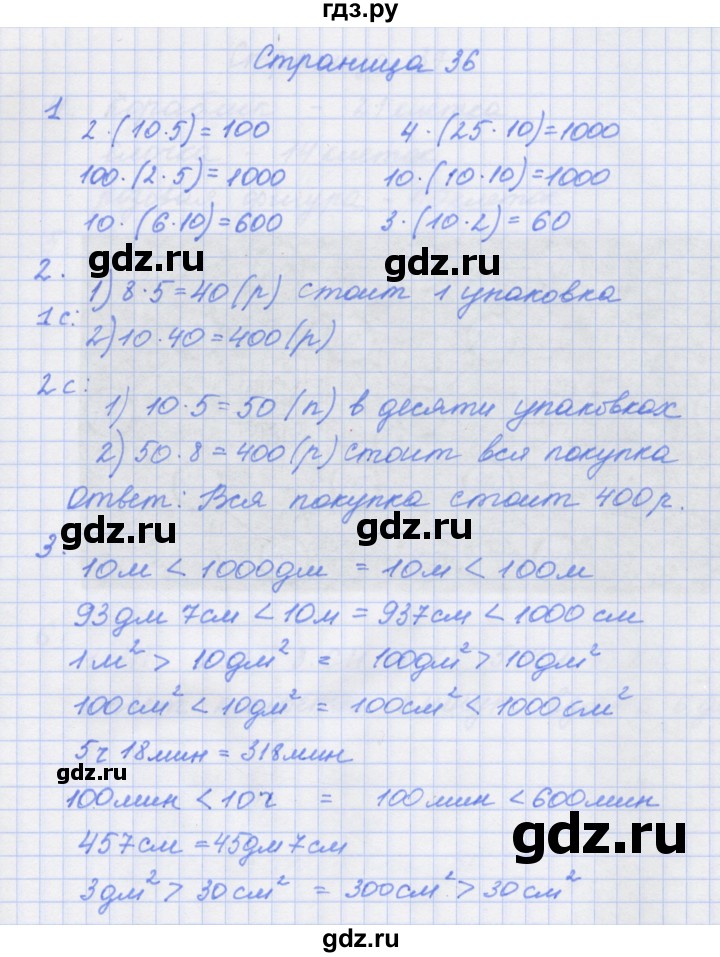 гдз.ру
Страница 36
1
2·(10·5)=100 4·(25·10)=1000
100·(2·5)=1000 10·(10·10)=1000
10·(6·10)=600 3·(10·2)=60
gdz.ru gdz.ru
2.
1) 8·5=40(р) стоит 1 упаковка
1с:
2) 10·40=400(р)
2с:
1) 10·5=50(п) в десяти упаковках
2) 50·8=400(р) стоит вся покупка
Ответ: Вся покупка стоит 400р.
gdz.ru gdz.ru
3.
10м < 1000дм = 10м < 100м
93дм 7см < 10м = 937см < 1000см
1м² > 10дм² = 100дм² > 10дм²
100см² < 10дм² = 100см² < 1000см²
5ч 18мин = 318мин
gdz.ru
100мин < 10ч = 100мин < 600мин
457см = 45дм 7см
gdz.ru
3дм² > 30см² = 300см² > 30см²
gdz.ru